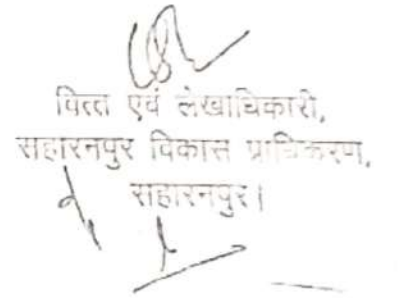 वित्त एवं लेखाधिकारी,
सहारनपुर विकास प्राधिकरण,
सहारनपुर।